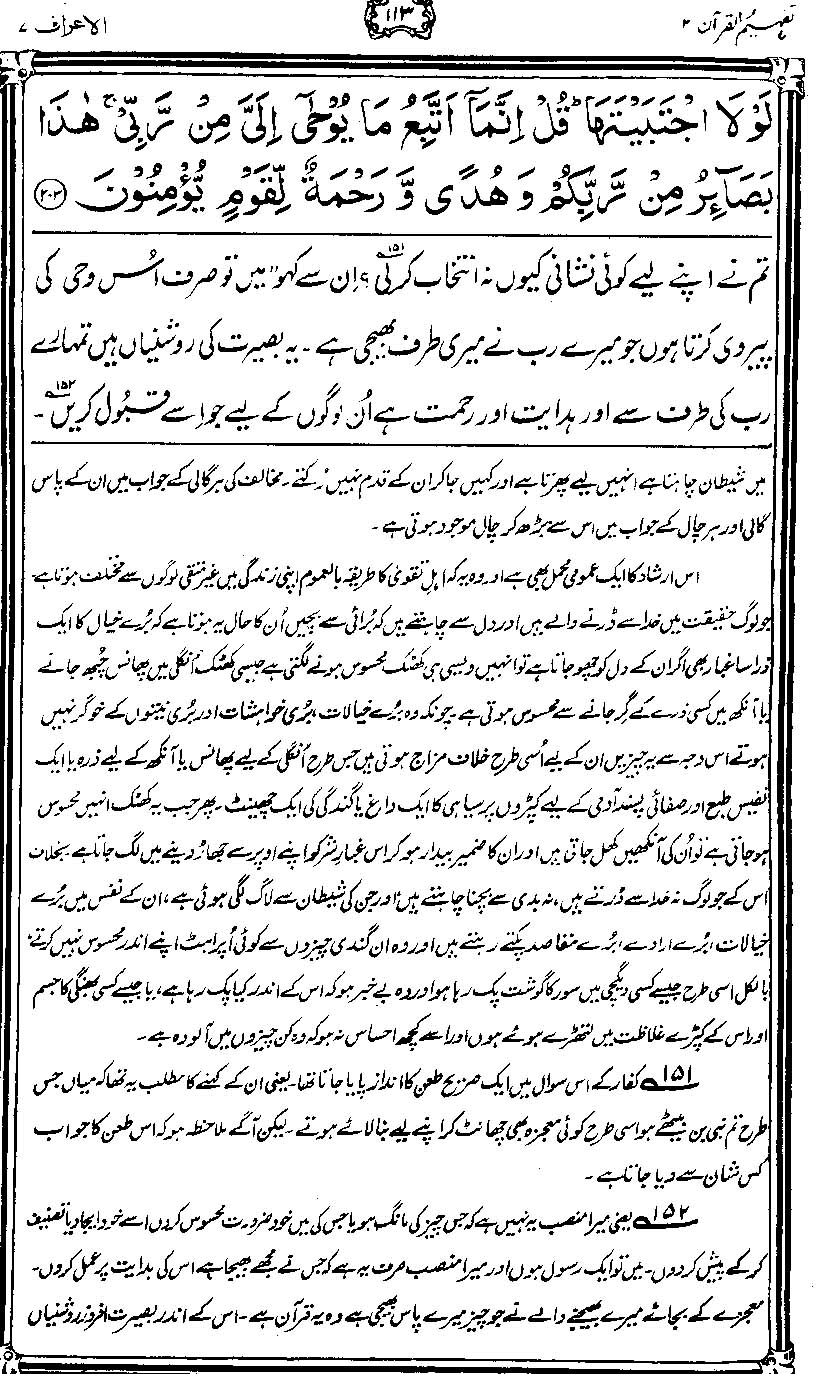 تفہیم القرآن ۲
۱۱۳
الاعراف ۷
لَوْلَا اجْتَبَيْتَهَا ؕ قُلْ اِنَّمَاۤ اَتَّبِعُ مَا يُوْحٰۤى اِلَىَّ مِنْ رَّبِّىْ ۚ هٰذَا
بَصَآئِرُ مِنْ رَّبِّكُمْ وَهُدًى وَّ رَحْمَةٌ لِّقَوْمٍ يُّؤْمِنُوْنَ ﴿۲۰۳﴾
تم نے اپنے لیے کوئی نشانی کیوں نہ انتخاب کرلی۱۵۱؟ اِن سے کہو "میں تو صرف اُس وحی کی
پیروی کرتا ہوں جو میرے رب نے میری طرف بھیجی ہے۔ یہ بصیرت کی روشنیاں ہیں تمہارے
رب کی طرف سے اور ہدایت اور رحمت ہے اُن لوگوں کے لیے جو اسے قبول کریں۱۵۲۔
میں شیطان چاہتا ہے انہیں لیے پھرتا ہے اور کہیں جا کر ان کے قدم نہیں رُکتے۔ مخالف کی ہر گالی کے جواب میں ان کے پاس
گالی اور ہر چال کے جواب میں اس سے بڑھ کر چال موجود ہوتی ہے۔
اس ارشاد کا ایک عمومی محل بھی ہے اور وہ یہ کہ اہل تقویٰ کا طریقہ بالعموم اپنی زندگی میں غیر متقی لوگوں سے مختلف ہوتا ہے
جو لوگ حقیقت میں خدا سے ڈرنے والے ہیں اور دل سے چاہتے ہیں کہ بُرائی سے بچیں اُن کا حال یہ ہوتا ہے کہ بُرے خیال کا ایک
ذرا سا غبار بھی اگر ان کے دل کو چھو جاتا ہے تو انہیں ویسی ہی کھٹک محسوس ہونے لگتی ہے جیسی کھٹک اُنگلی میں پھانس چُبھ جانے
یا آنکھ میں کسی ذرے کے گر جانے سے محسوس ہوتی ہے۔ چونکہ وہ بُرے خیالات، بُری خواہشات اور بُری نیتوں کے خوگر نہیں
ہوتے اس وجہ سے یہ چیزیں ان کے لیے اُسی طرح خلاف مزاج ہوتی ہیں جس طرح اُنگلی کے لیے پھانس یا آنکھ کے لیے ذرہ یا ایک
نفیس طبع اور صفائی پسند آدمی کے لیے کپڑوں پر سیاہی کا ایک داغ یا گندگی کی ایک چھینٹ۔ پھر جب یہ کھٹک انہیں محسوس
ہو جاتی ہے تو اُن کی آنکھیں کھل جاتی ہیں اور ان کا ضمیر بیدار ہو کر اس غبارِ شر کو اپنے اوپر سے جھاڑ دینے میں لگ جاتا ہے۔ بخلاف
اس کے جو لوگ نہ خدا سے ڈرتے ہیں، نہ بدی سے بچنا چاہتے ہیں، اور جن کی شیطان سے لاگ لگی ہوئی ہے، ان کے نفس میں بُرے
خیالات، بُرے ارادے، بُرے مقاصد پکتے رہتے ہیں اور وہ ان گندی چیزوں سے کوئی اُپراہٹ اپنے اندر محسوس نہیں کرتے،
بالکل اسی طرح جیسے کسی دیگچی میں سور کا گوشت پک رہا ہو اور وہ بے خبر ہو کہ اس کے اندر کیا پک رہا ہے، یا جیسے کسی بھنگی کا جسم
اور اس کے کپڑے غلاظت میں لتھڑے ہوئے ہوں اور اسے کچھ احساس نہ ہو کہ وہ کن چیزوں میں آلودہ ہے۔
۱۵۱ کفار کے اس سوال میں ایک صریح طعن کا انداز پایا جاتا تھا۔ یعنی ان کے کہنے کا مطلب یہ تھا کہ میاں جس
طرح تم نبی بن بیٹھے ہو اسی طرح کوئی معجزہ بھی چھانٹ کر اپنے لیے بنا لائے ہوتے۔ لیکن آگے ملاحظہ ہو کہ اس طعن کا جواب
کس شان سے دیا جاتا ہے۔
۱۵۲ یعنی میرا منصب یہ نہیں ہے کہ جس چیز کی مانگ ہو یا جس کی میں خود ضرورت محسوس کروں اسے خود ایجاد یا تصنیف
کر کے پیش کردوں۔ میں تو ایک رسول ہوں اور میرا منصب صرف یہ ہے کہ جس نے مجھے بھیجا ہے اس کی ہدایت پر عمل کروں۔
معجزے کے بجائے میرے بھیجنے والے نے جو چیز میرے پاس بھیجی ہے وہ یہ قرآن ہے۔ اس کے اندر بصیرت افروز روشنیاں